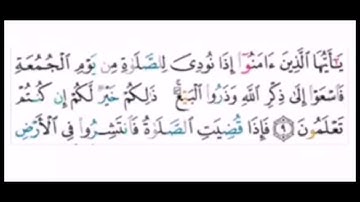 يَٰٓأَيُّهَا ٱلَّذِينَ ءَامَنُوٓا۟ إِذَا نُودِىَ لِلصَّلَوٰةِ مِن يَوْمِ ٱلْجُمُعَةِ
فَٱسْعَوْا۟ إِلَىٰ ذِكْرِ ٱللَّهِ وَذَرُوا۟ ٱلْبَيْعَ ۚ ذَٰلِكُمْ خَيْرٌ لَّكُمْ إِن كُنتُمْ
تَعْلَمُونَ ٩ فَإِذَا قُضِيَتِ ٱلصَّلَوٰةُ فَٱنتَشِرُوا۟ فِى ٱلْأَرْضِ